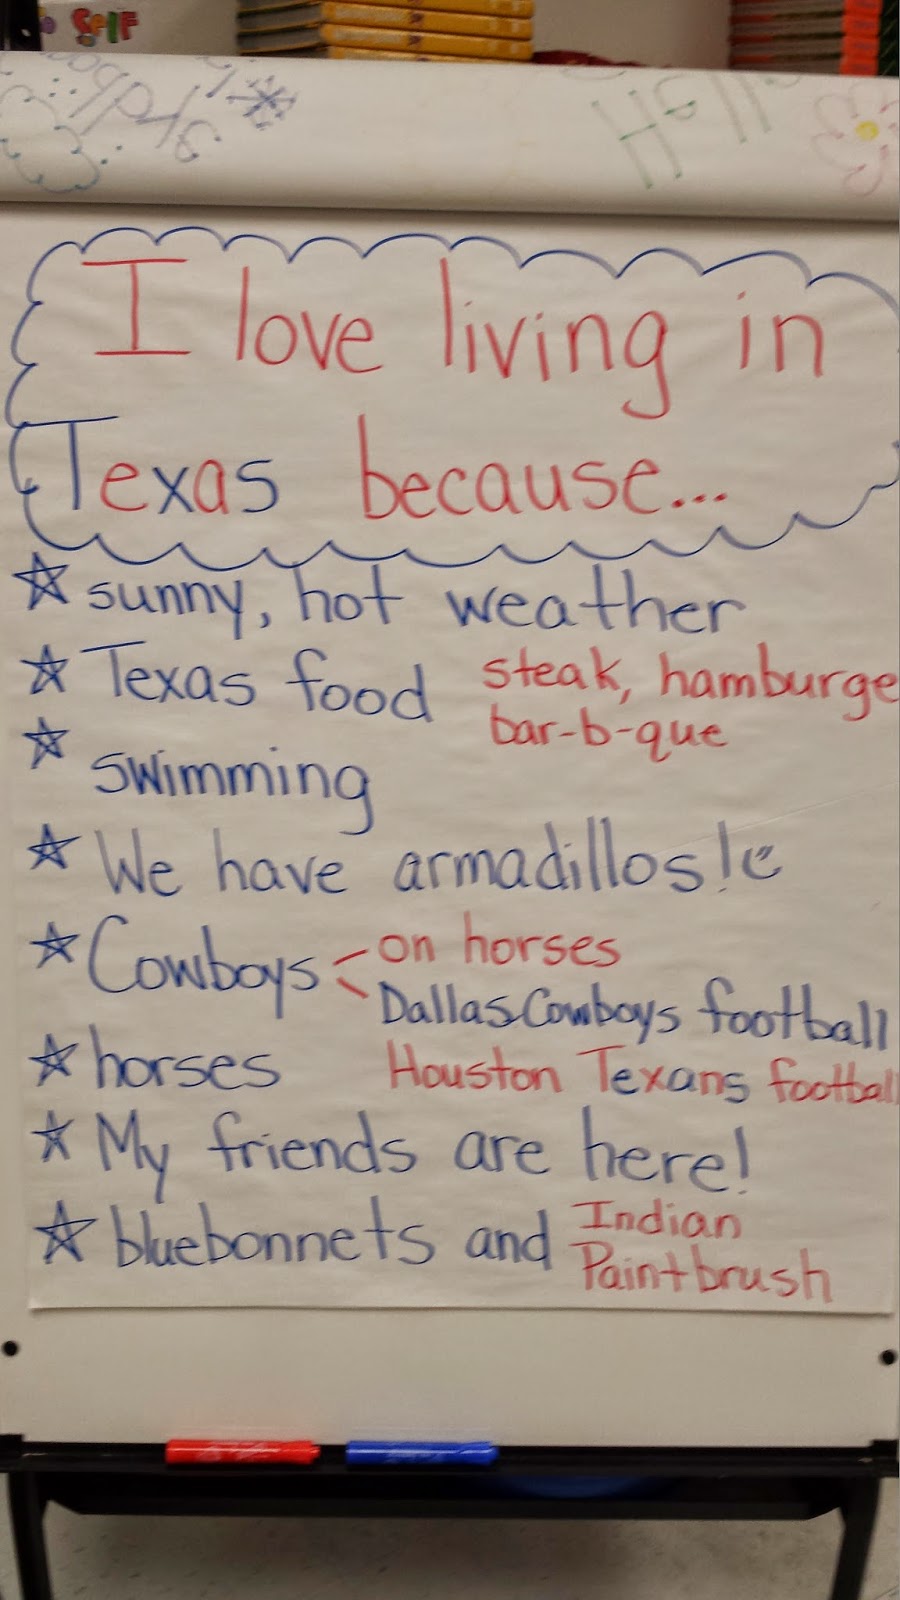 Self
Hello
I love living in
Texas because...
sunny, hot weather
Texas food steak, hamburge
bar-b-que
swimming
We have armadillos!
Cowboys on horses
Dallas Cowboys football
horses Houston Texans football
My friends are here!
bluebonnets and Indian
Paintbrush